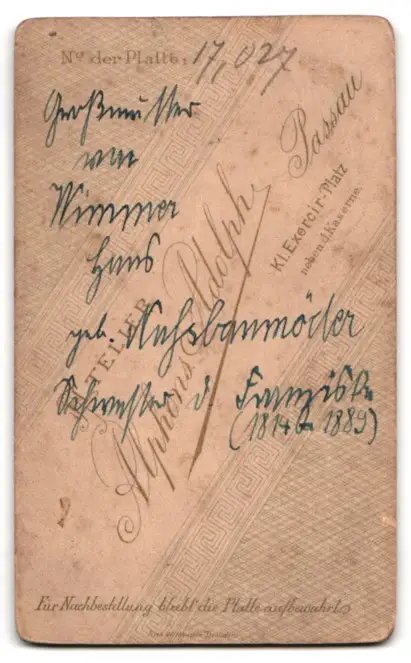 No der Platte: 17,027
Großmutter
von
Wimmer
Hans
geb.
Schwester d. Franziska
(1814 - 1889)
ATELIER
Alphons Adolph
Passau
Kl. Exercir-Platz
neben d. Kaserne.
Für Nachbestellung bleibt die Platte aufbewahrt